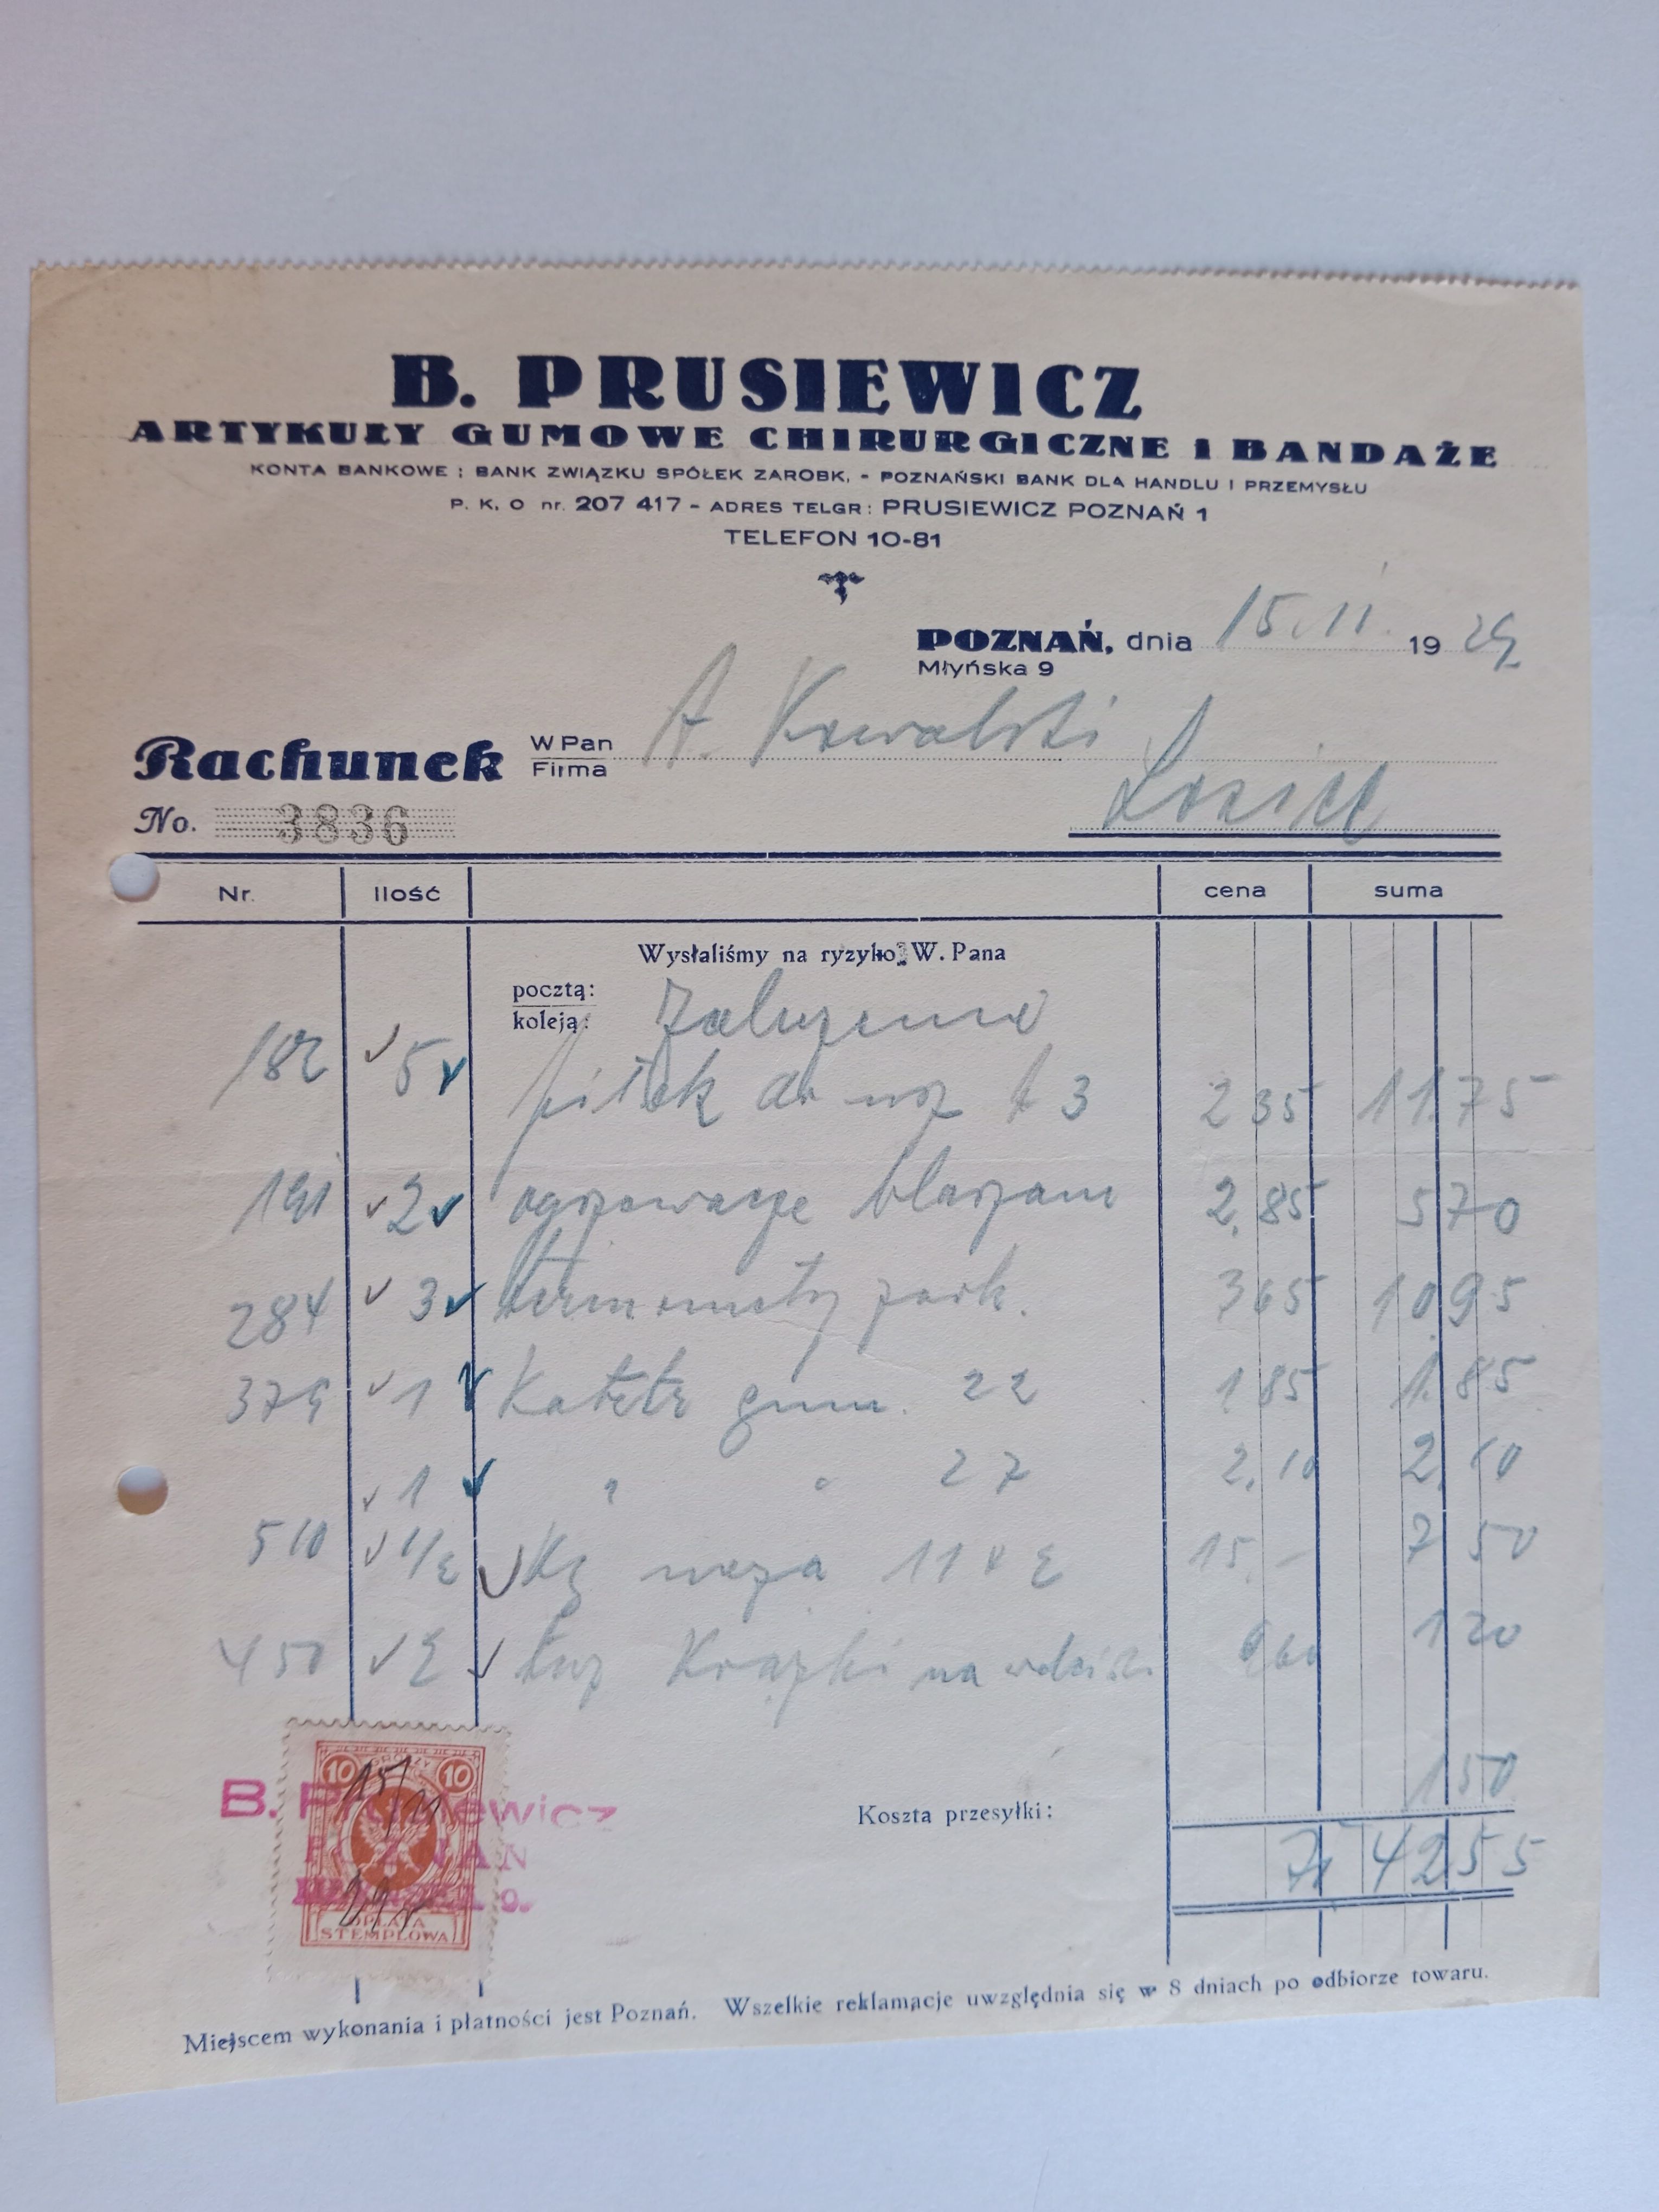 B. PRUSIEWICZ
ARTYKUŁY GUMOWE CHIRURGICZNE I BANDAŻE
KONTA BANKOWE : BANK ZWIĄZKU SPÓŁEK ZAROBK. - POZNAŃSKI BANK DLA HANDLU I PRZEMYSŁU
P. K. O nr. 207 417 - ADRES TELGR : PRUSIEWICZ POZNAŃ 1
TELEFON 10-81
POZNAŃ, dnia 15.11. 1929
Młyńska 9
Rachunek W Pan A. Kowalski
Firma
No. 3836
Nr. Ilość cena suma
Wysłaliśmy na ryzyko W. Pana
pocztą:
koleją:
182 5 3 2 35 11.75
191 2 2.85 5 70
284 3 termometry 3 65 10.95
379 1 Katetr gum. 22 1 85 1.85
1 " " 27 2.10 2.10
510 1/2 Kg 15.- 7 50
450 2 Krążki na 0 60 1 20
1 50
Koszta przesyłki:
zł 42 55
10 GROSZY 10
15/11
29 r
OPŁATA
STEMPLOWA
B. Prusiewicz
POZNAŃ
9.
Miejscem wykonania i płatności jest Poznań. Wszelkie reklamacje uwzględnia się w 8 dniach po odbiorze towaru.